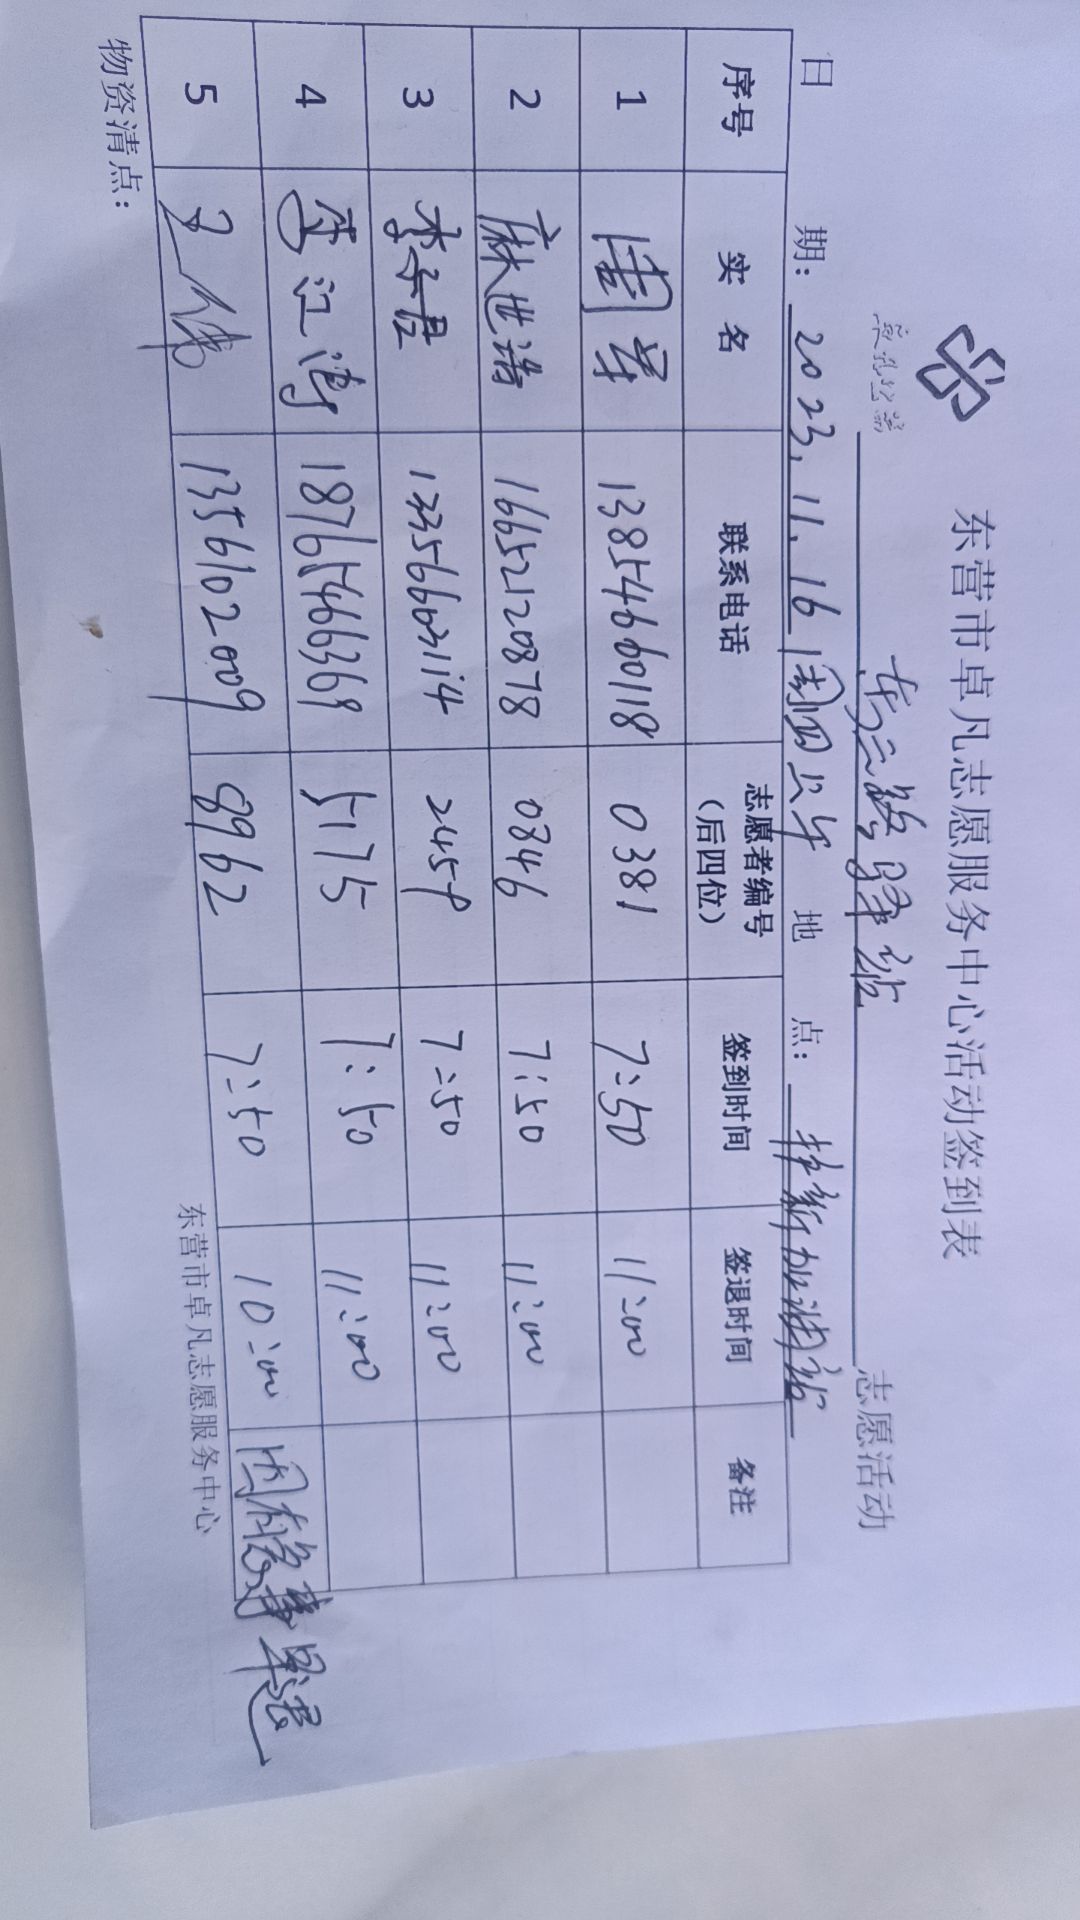 卓凡公益
东营市卓凡志愿服务中心活动签到表
东二路驿站 志愿活动
日 期: 2023.11.16 周四上午 地 点: 林新加油站
序号 实 名 联系电话 志愿者编号(后四位) 签到时间 签退时间 备注
1 周军 13854660118 0381 7:50 11:00
2 麻世浩 16652120878 0346 7:50 11:00
3 李子君 13356603114 2459 7:50 11:00
4 李江涛 18765466369 5175 7:50 11:00
5 王伟 13561022009 8962 7:50 10:00 因有事早退
物资清点: 东营市卓凡志愿服务中心